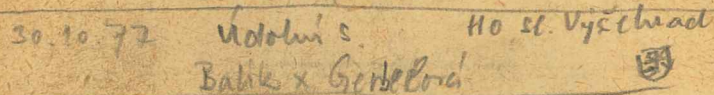 30.10.77 Údolní s. HO sl. Vyšehrad
Balik x Gerbelová